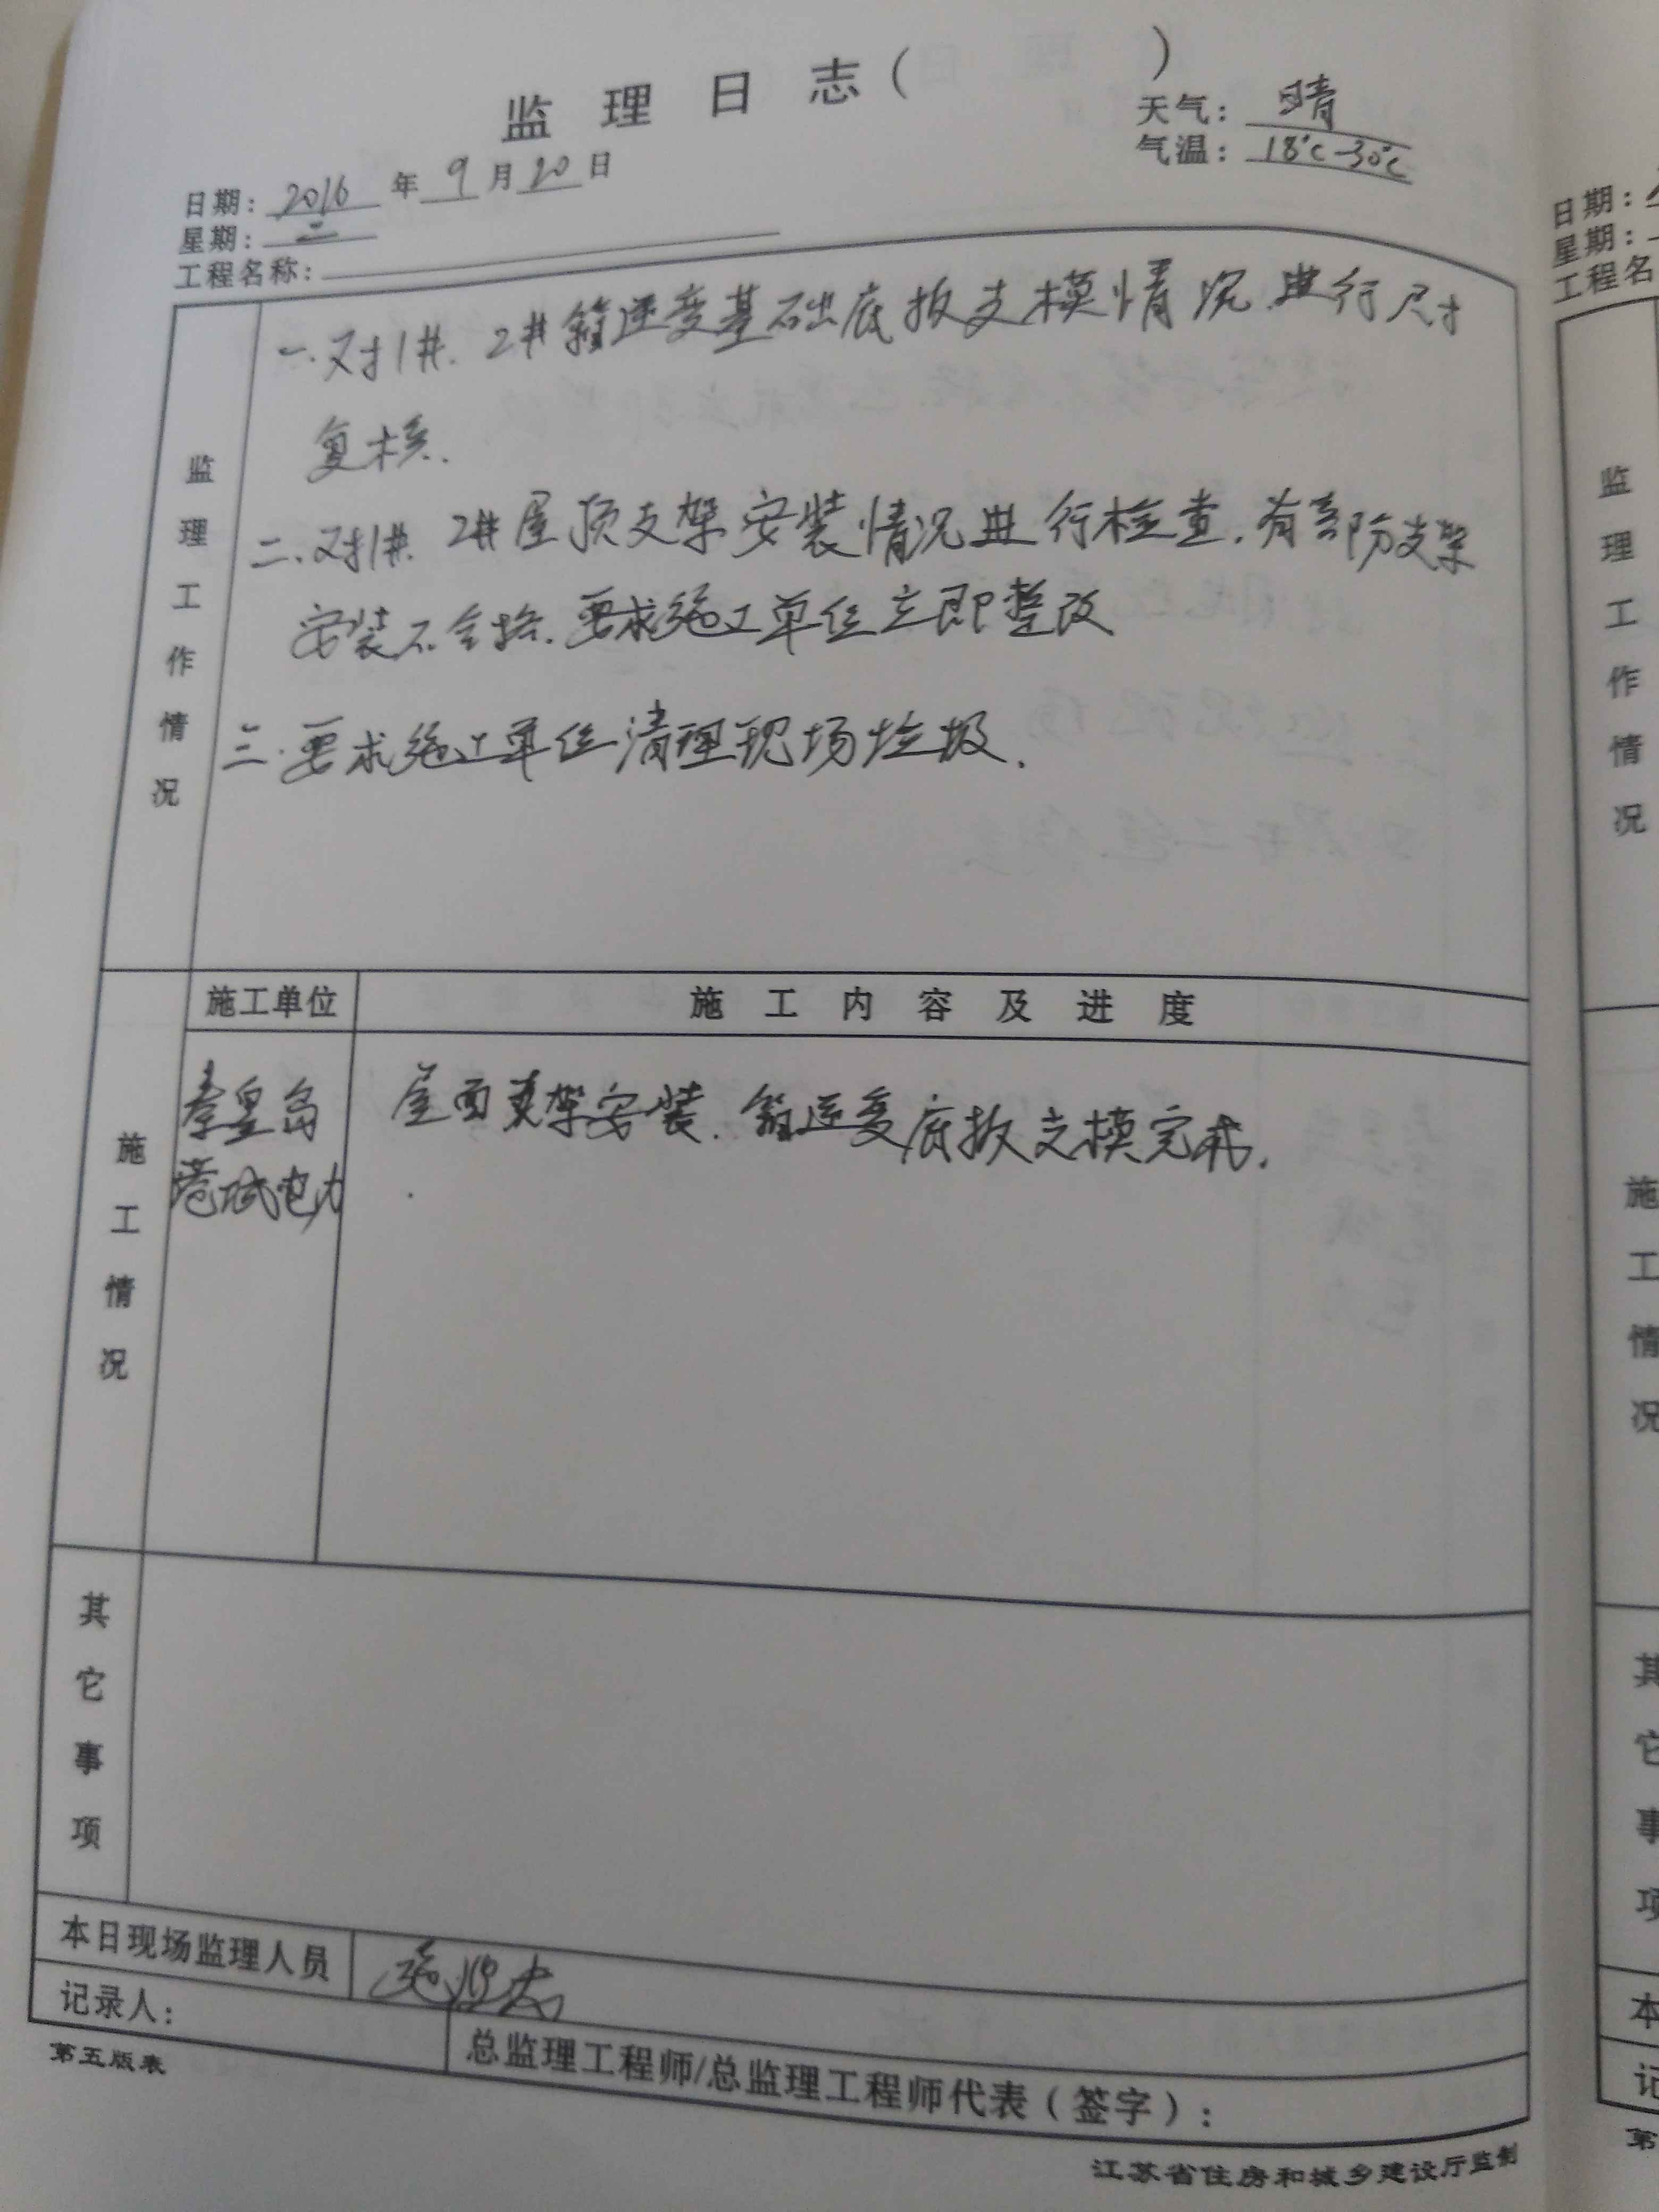 监 理 日 志（ ）
天气：晴
气温：18℃-30℃
日期：2016 年 9 月 20 日
星期：二
工程名称：
监理工作情况
一.对1#.2#箱逆变基础底板支模情况进行尺寸
复核.
二.对1#.2#屋顶支架安装情况进行检查.有部分支架
安装不合格.要求施工单位立即整改
三.要求施工单位清理现场垃圾.
施工情况
施工单位
施 工 内 容 及 进 度
秦皇岛
港城电力
屋面支架安装.箱逆变底板支模完成.
其它事项
本日现场监理人员
记录人：
总监理工程师/总监理工程师代表（签字）：
第五版表
江苏省住房和城乡建设厅监制
日期：
星期：
工程名
监理工作情况
施工情况
其它事项
本
记
第